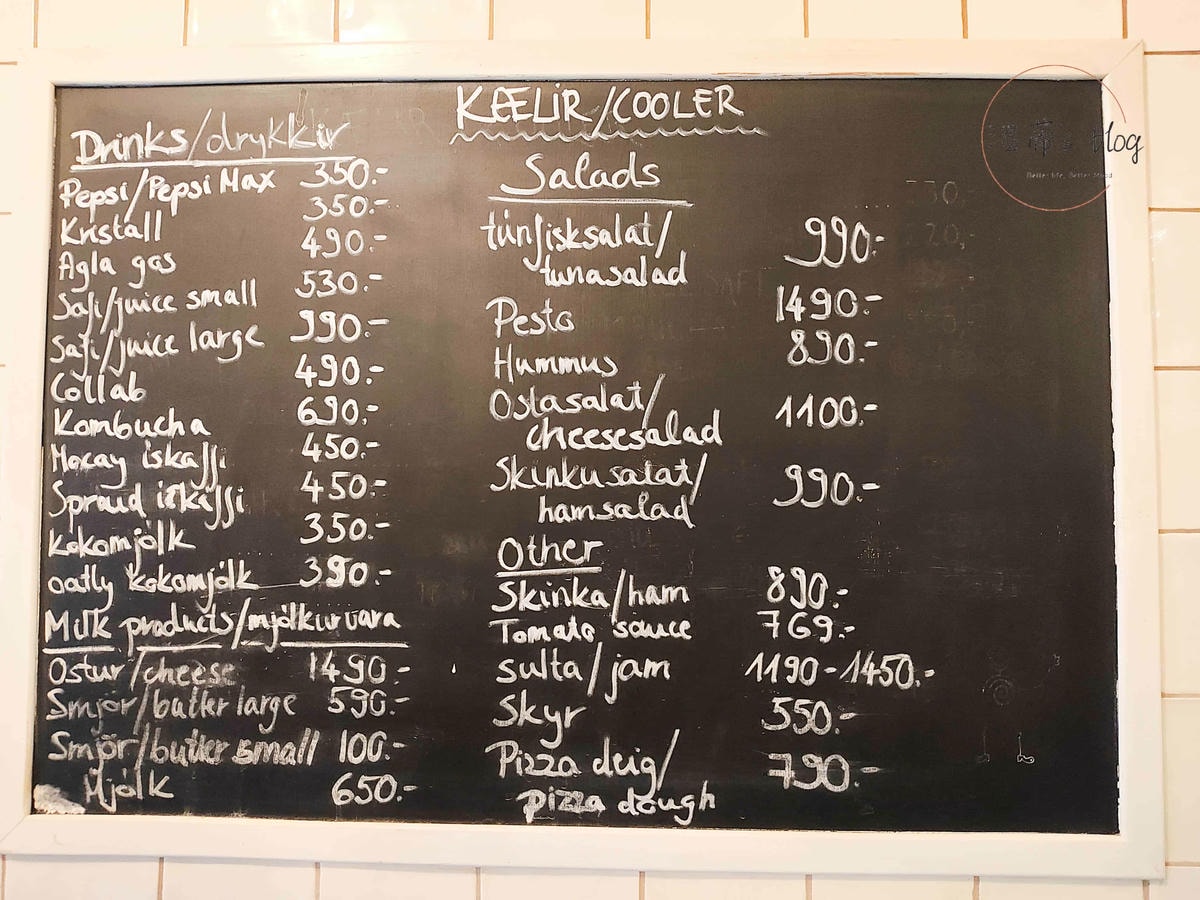 KÆLIR/COOLER
Drinks/drykkir
Pepsi/Pepsi Max 350.-
Kristall 350.-
Agla gos 490.-
Safi/juice small 530.-
Safi/juice large 990.-
Collab 490.-
Kombucha 690.-
Mocay ískaffi 450.-
Sproud ískaffi 450.-
Kokomjólk 350.-
oatly kokomjólk 390.-
Milk products/mjólkurvara
Ostur/cheese 1490.-
Smjör/butter large 590.-
Smjör/butter small 100.-
Mjólk 650.-
Salads
túnfisksalat/ 990.-
tunasalad
Pesto 1490.-
Hummus 890.-
Ostasalat/ 1100.-
cheesesalad
Skinkusalat/ 990.-
hamsalad
Other
Skinka/ham 890.-
Tomato sauce 769.-
sulta/jam 1190-1450.-
Skyr 550.-
Pizza deig/ 790.-
pizza dough
blog
Better life, Better Mood